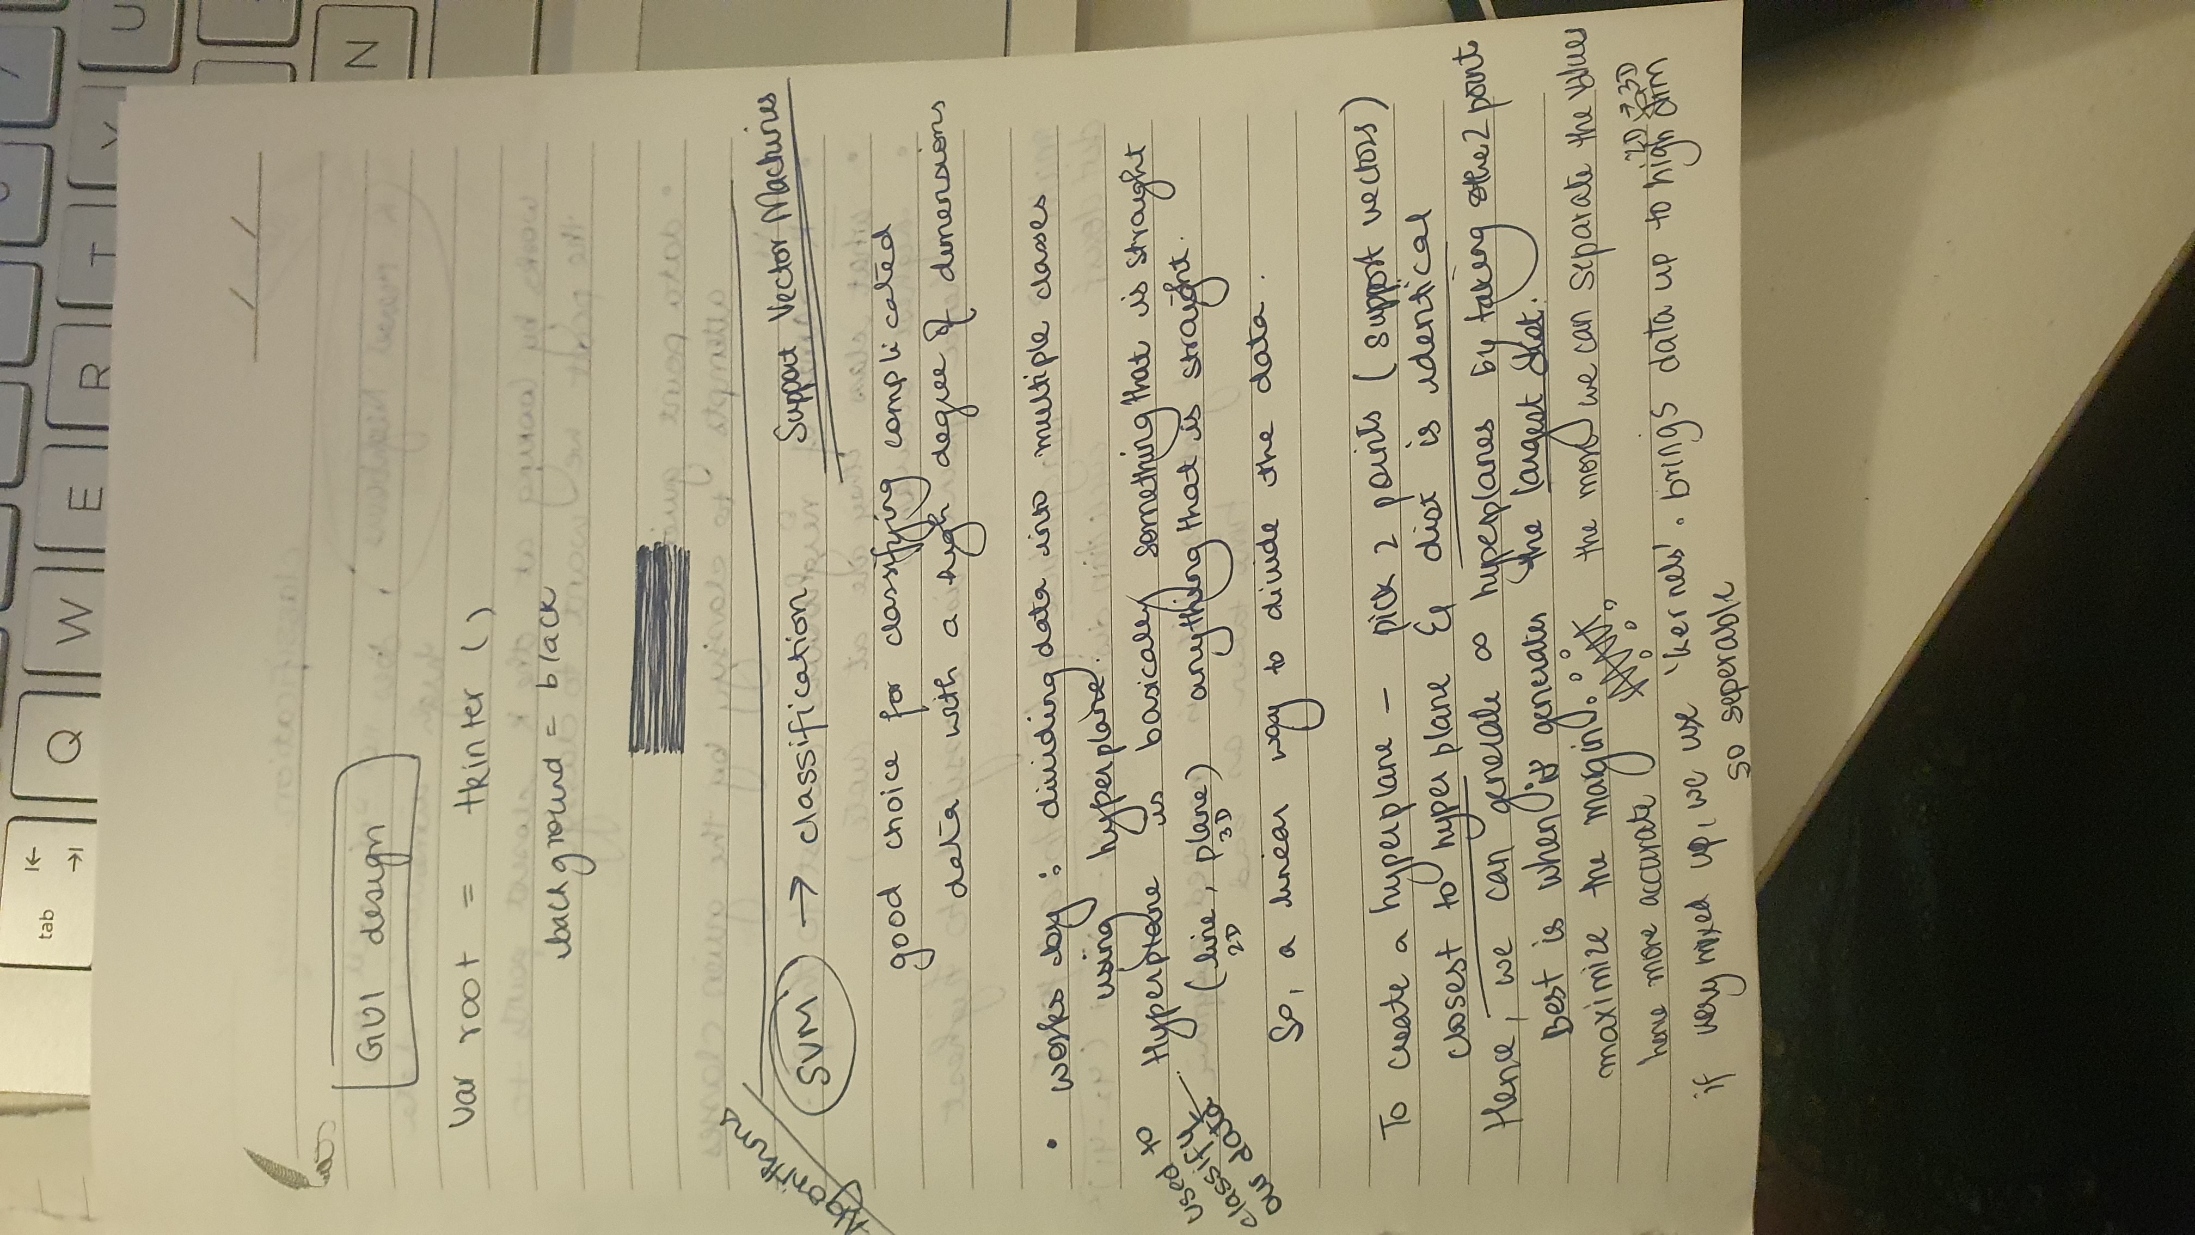 GUI design
var root = tkinter ()
background = black
Algorithms
SVM → classification Support Vector Machines
good choice for classifying complicated
data with a high degree of dimensions
• works by : dividing data into multiple classes
using hyperplane.
used to classify classify our data
Hyperplane is basicaley something that is straight
(line, plane) anything that is straight.
2D 3D
So, a linear way to divide the data.
To create a hyperplane - pick 2 points (support vectors)
closest to hyperplane & dist is identical
Hence, we can generate ∞ hyperplanes by taking other 2 point
Best is when it generates the largest dist.
maximize the margin, the more we can separate the values
hence more accurate
2D → 3D
if very mixed up, we use 'kernels'. brings data up to high dim
so seperable
tab
Q
W
E
R
T
Y
U
N